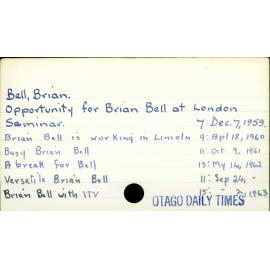 Bell, Brian.
Opportunity for Brian Bell at London
Seminar. 7: Dec. 7, 1959
Brian Bell is working in Lincoln 9: Apl 18, 1960
Busy Brian Bell 11: Oct 9, 1961
A break for Bell 13: May 14, 1962
Versatile Brian Bell 11: Sep 24, "
Brian Bell with ITV 15: 1963
OTAGO DAILY TIMES